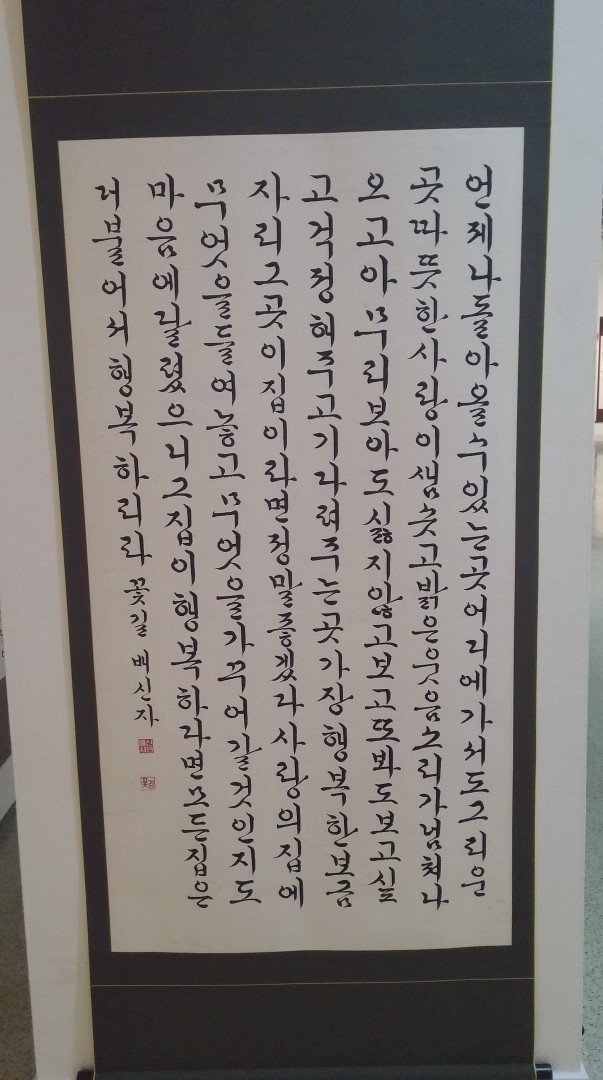 언제나돌아올수있는곳어리에가서도그리운
곳따뜻한사랑이샘솟고밝은웃음소리가넘쳐나
오고아무리보아도싫지않고보고또봐도보고싶
고걱정해주고기다려주는곳가장행복한보금
자리그곳이집이라면정말좋겠다사랑의집에
무엇을들여놓고무엇을가꾸어갈것인지도
마음에달렸으니그집이행복하다면모든집은
더불어서행복하리라 꽃길 배신자